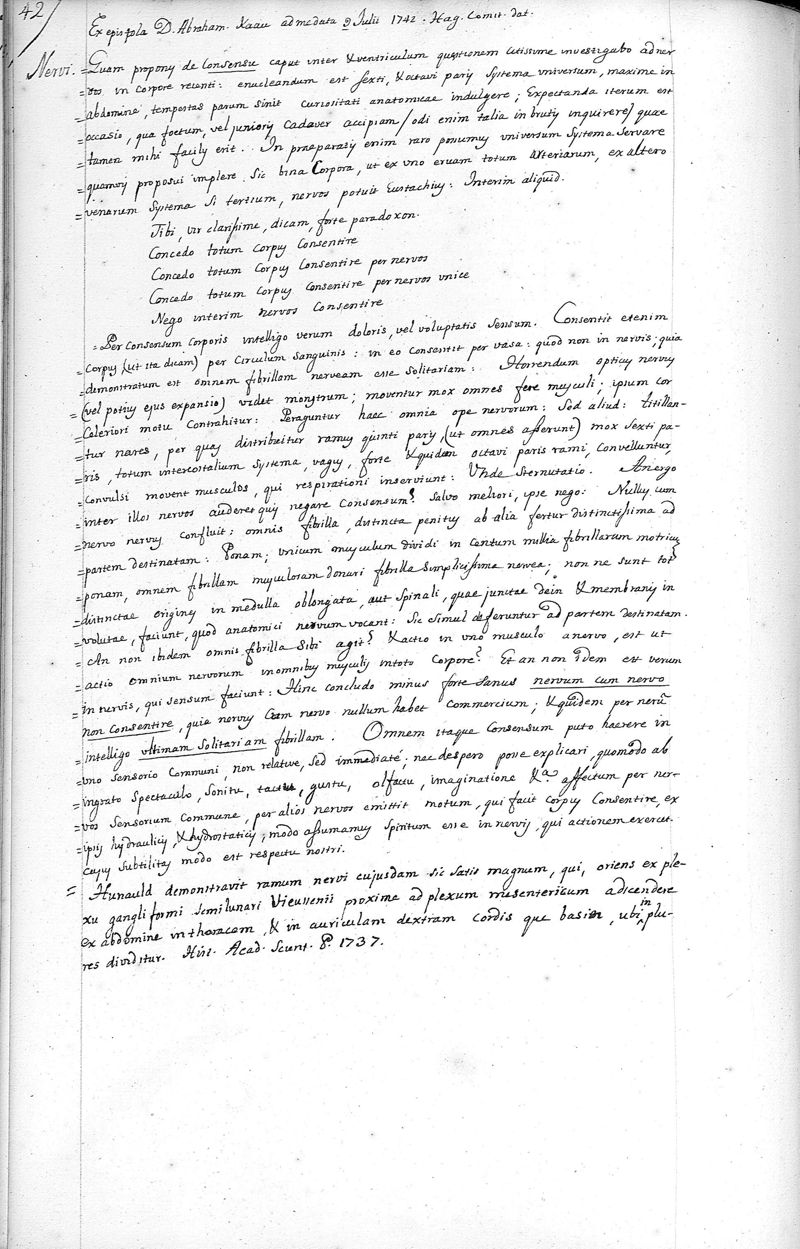 42
Ex epistola D. Abraham. Kaau ad me data 2 Julii 1742. Hag. Comit. dat.
Nervi. =Quam propony de Consensu caput inter & ventriculum quæstionem citissime investigabo ad ner
=vos in corpore recenti: enucleandum est sexti, & octavi pary systema universum, maxime in
=abdomine, tempestas parum sinit curiositati anatomicae indulgere; Expectanda iterum est
=occasio, qua foetum, vel juniory Cadaver accipiam/odi enim talia in bruty inquirere) quae
=tamen mihi facily erit. In praeparasy enim raro ponimuy universum systema servare
=quamvy proposui implere. Sic bina Corpora, ut ex uno eruam totum arteriarum, ex altero
=venarum Systema si tertium, nervos potuit Eustachiuy: Interim aliquid.
Tibi, vir clarissime, dicam, forte paradoxon.
Concedo totum Corpuy Consentire
Concedo totum Corpuy Consentire per nervos
Concedo totum Corpuy Consentire per nervos unice
Nego interim nervos Consentire
=Per Consensum Corporis intelligo verum doloris, vel voluptatis sensum. Consentit etenim
=Corpuy (ut ita dicam) per Circulum Sanguinis: in eo Consentit per vasa: quod non in nervis, quia
=demonstratum est omnem fibrillam nerveam esse solitariam: Horrendum opticuy nervuy
=(vel potiuy ejus expansio) videt monstrum; moventur mox omnes fere musculi; ipsum cor
=Celeriori motu Contrahitur: Peraguntur haec omnia ope nervorum: Sed aliud: titillan-
=tur nares, per quay distribuitur ramuy quinti pary, (ut omnes asserunt) mox sexti pa-
=ris, totum intercostalium systema, vaguy, forte & quidam octavi paris rami, Convelluntur,
=convulsi movent musculos, qui respirationi inserviunt: Unde sternutatio. An ergo
=inter illos nervos auderet quiy negare Consensum? Salvo meliori, ipse nego: Nulluy cum
=nervo nervuy confluit: omnis fibrilla, distincta penituy ab alia fertur distinctissima ad
=partem destinatam: Ponam; unicum musculum dividi in Centum millia fibrillarum motricuy
=ponam, omnem fibrillam musculosam donari fibrilla simplicissima nervea; non ne sunt tot
=distinctae originy in medulla oblongata, aut spinali, quae junctae dein & membranis in
=volutae, faciunt, quod anatomici nervum vocant: Sic simul deferuntur ad partem destinatam.
=An non ibidem omnis fibrilla sibi agit? & actio in uno musculo a nervo, est ut
=actio omnium nervorum in omnibuy musculiy in toto Corpore? Et an non idem est verum
=in nervis, qui sensum faciunt: Hinc concludo minus forte sanus nervum cum nervo
=non Consentire, quia nervuy cum nervo nullum habet commercium; & quidem per nerū
=intelligo ultimam solitariam fibrillam. Omnem itaque Consensum puto haerere in
=uno sensorio Communi, non relative, sed immediaté, nec despero posse explicari, quomodo ab
=ingrato spectaculo, sonitu, tactu, gustu, olfactu, imaginatione &a affectum per ner-
=vos sensorium Commune, per alios nervos emittit motum, qui facit Corpuy Consentire, ex
=ipsiy hydrauliciy, & hydrostaticiy; modo assumamuy spiritum esse in nerviy, qui actionem exercet.
cujuy subtilitay modo est respectu nostri.
= Hunauld demonstravit ramum nervi cujusdam sic satis magnum, qui, oriens ex ple-
xu gangliformi semilunari Vieussenii proxime ad plexum mesentericum adscendere
ex abdomine in thoracem, & in auriculam dextram cordis que basin, ubi in plu-
res dividitur. Hist. Acad. Scient. P. 1737.